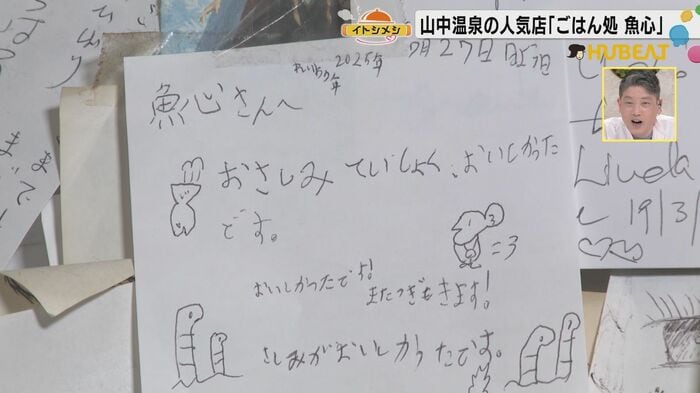 イトシメシ
山中温泉の人気店「ごはん処 魚心」
HUBEAT
2025年
7月27日
魚心さんへ
おさしみ ていしょく、おいしかった
です。
=3
おいしかったです!
またつぎもきます!
さしみがおいしかったです。
Linda
19/3/